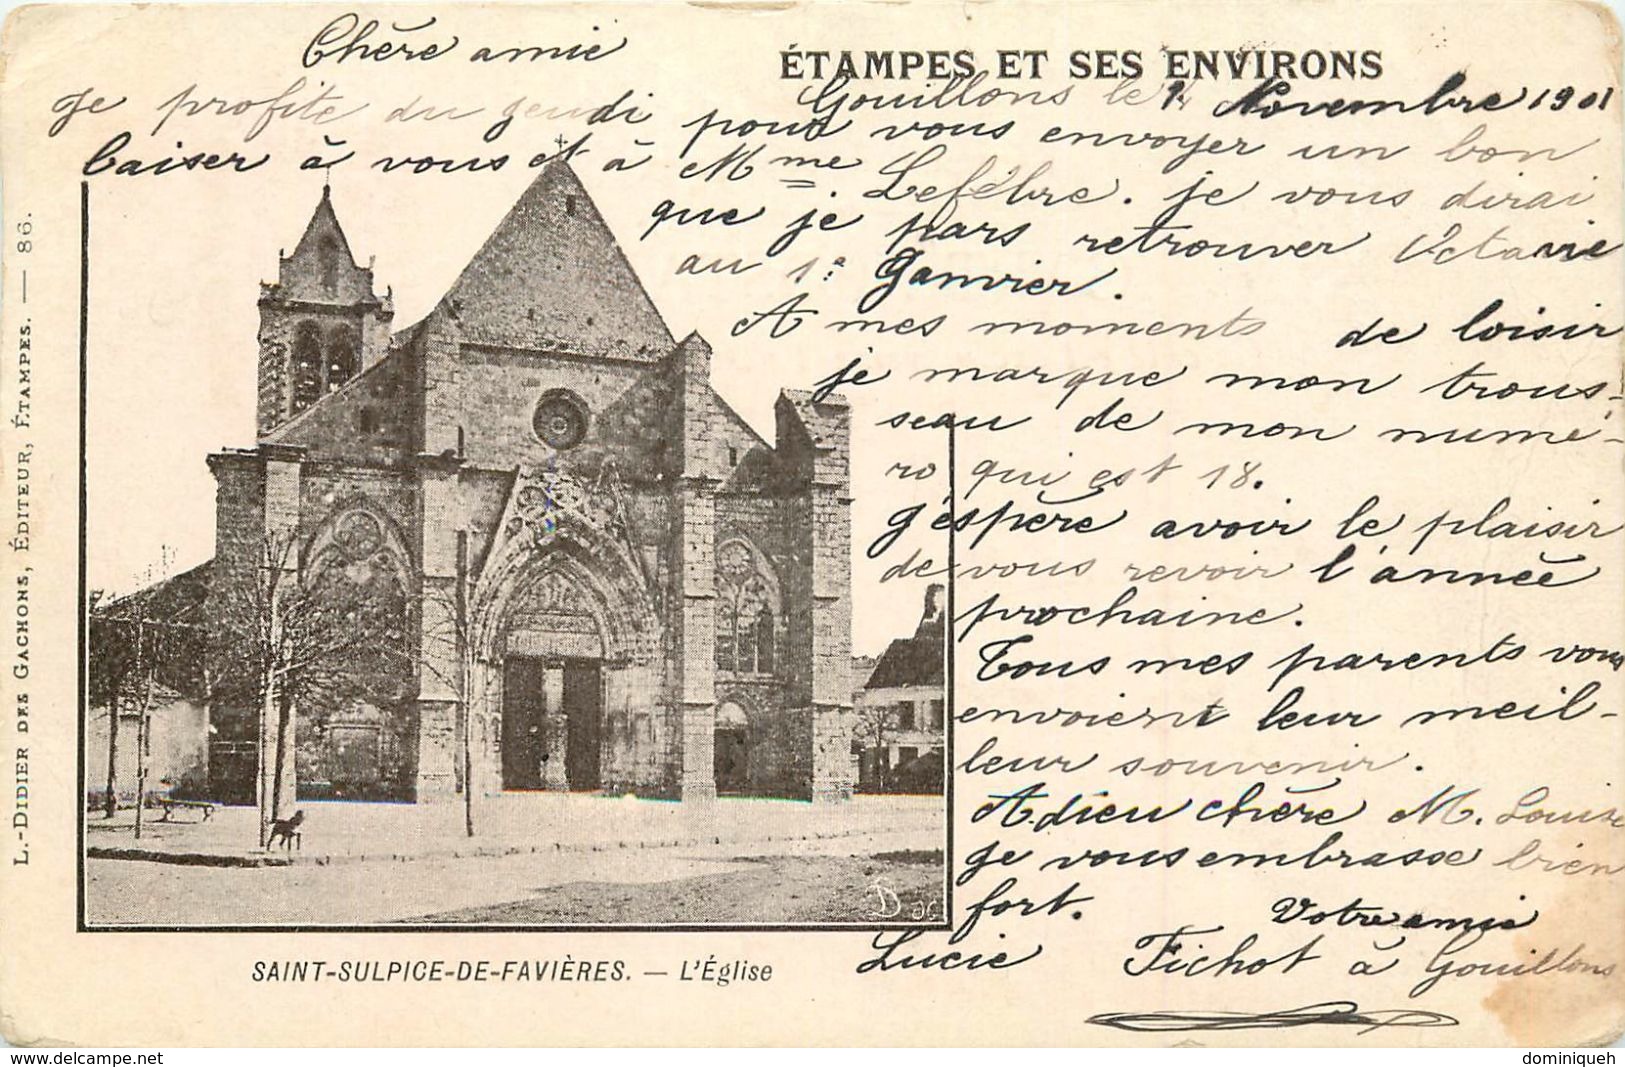 ÉTAMPES ET SES ENVIRONS
Gouillons le 14 Novembre 1901
Chère amie
Je profite du jeudi pour vous envoyer un bon
baiser à vous et à Mme Lefébre. je vous dirai
que je pars retrouver Octavie
au 1e Janvier.
A mes moments de loisir
je marque mon trous-
seau de mon numé-
ro qui est 18.
J'éspère avoir le plaisir
de vous revoir l'année
prochaine.
Tous mes parents vous
envoient leur meil-
leur souvenir.
Adieu chère M. Louise
je vous embrasse bien
fort. Votre amie
Lucie Fichot à Gouillons
SAINT-SULPICE-DE-FAVIÈRES. — L'Église
L.-DIDIER DES GACHONS, ÉDITEUR, ÉTAMPES. — 86.
www.delcampe.net
dominiqueh